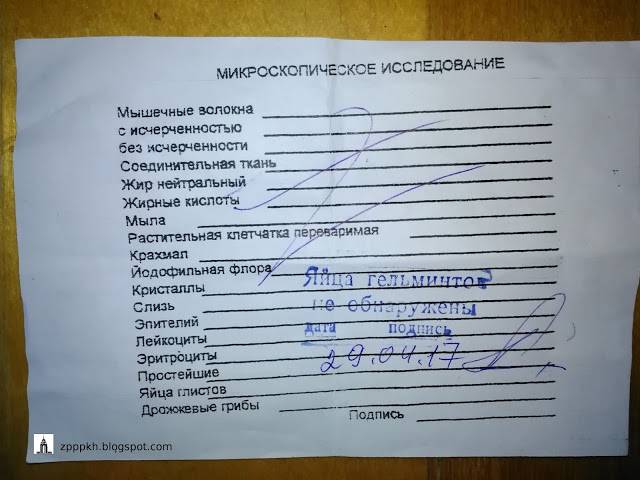 МИКРОСКОПИЧЕСКОЕ ИССЛЕДОВАНИЕ
Мышечные волокна
с исчерченностью
без исчерченности
Соединительная ткань
Жир нейтральный
Жирные кислоты
Мыла
Растительная клетчатка переваримая
Крахмал
Йодофильная флора
Кристаллы
Слизь
Эпителий
Лейкоциты
Эритроциты
Простейшие
Яйца глистов
Дрожжевые грибы
Подпись
Яйца гельминтов
не обнаружены
дата подпись
29.04.17
zpppkh.blogspot.com